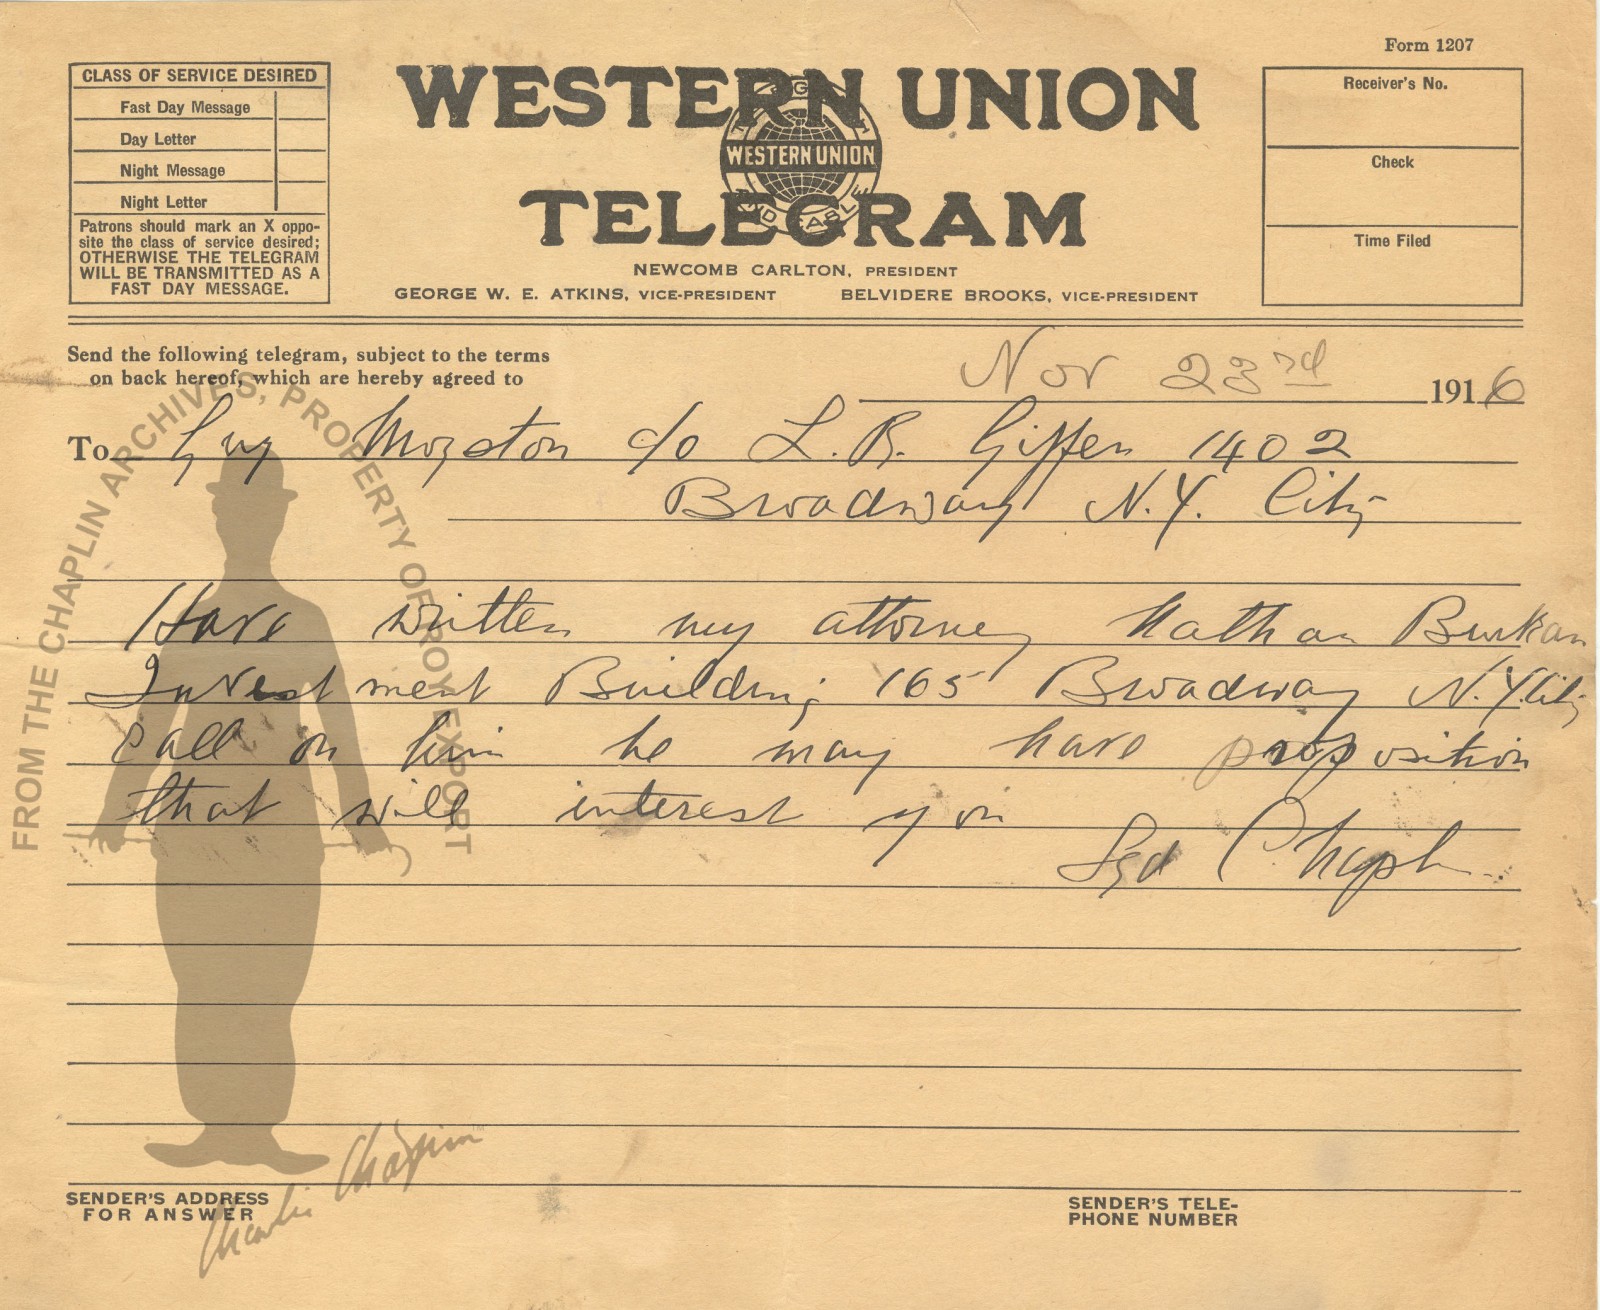 Form 1207
CLASS OF SERVICE DESIRED
Fast Day Message
Day Letter
Night Message
Night Letter
Patrons should mark an X oppo-
site the class of service desired;
OTHERWISE THE TELEGRAM
WILL BE TRANSMITTED AS A
FAST DAY MESSAGE.
WESTERN UNION
WESTERN UNION
TELEGRAM
NEWCOMB CARLTON, PRESIDENT
GEORGE W. E. ATKINS, VICE-PRESIDENT BELVIDERE BROOKS, VICE-PRESIDENT
Receiver's No.
Check
Time Filed
Send the following telegram, subject to the terms
on back hereof, which are hereby agreed to
Nov 23rd 1916
To Guy Moyston c/o L. R. Giffen 1402
Broadway N.Y. City
Have written my attorney Nathan Burkan
Investment Building 165 Broadway N.Y. City
Call on him he may have proposition
that will interest you
Sgd Chapln
FROM THE CHAPLIN ARCHIVES, PROPERTY OF ROY EXPORT
Charlie Chaplin
SENDER'S ADDRESS
FOR ANSWER
SENDER'S TELE-
PHONE NUMBER